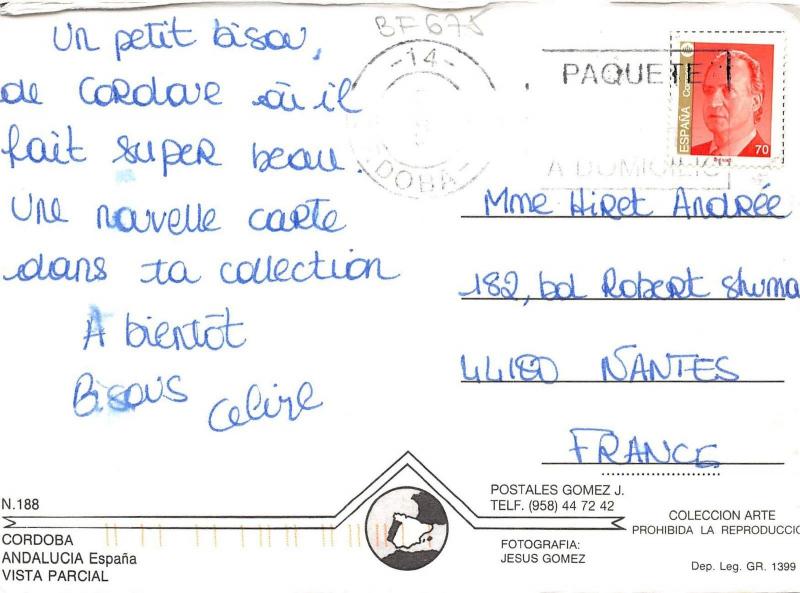 BF 675
Un petit bisou,
de CORDOUE où il
fait super beau.
Une nouvelle carte
dans ta collection
A bientôt
Bisous
-14-
PAQUETE
A DOMICILIO
ESPAÑA
70
Mme Hiret Andrée
182, bd Robert Shuma
44180 NANTES
FRANCE
N.188
CORDOBA
ANDALUCIA España
VISTA PARCIAL
POSTALES GOMEZ J.
TELF. (958) 44 72 42
FOTOGRAFIA:
JESUS GOMEZ
COLECCION ARTE
PROHIBIDA LA REPRODUCCIO
Dep. Leg. GR. 1399